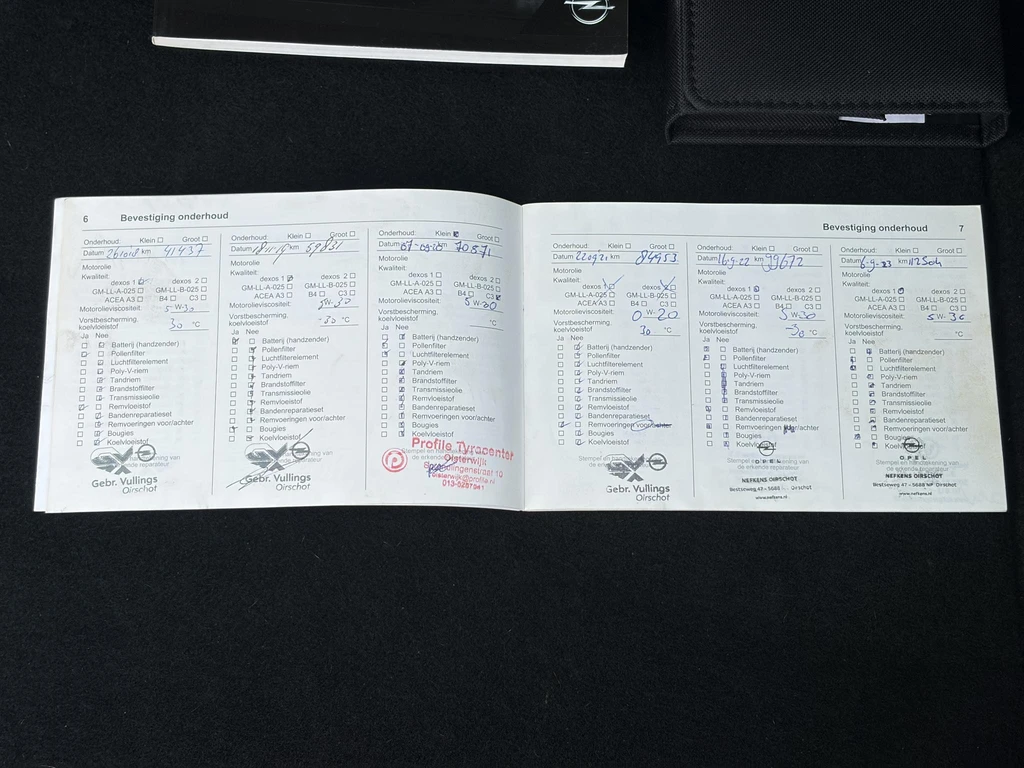 6 Bevestiging onderhoud
Onderhoud: Klein Groot
Datum km 41437
Motorolie
Kwaliteit:
dexos 1 dexos 2
GM-LL-A-025 GM-LL-B-025
ACEA A3 B4 C3
Motorolieviscositeit: 5W-30
Vorstbescherming,
koelvloeistof 30 °C
Ja Nee
Batterij (handzender)
Pollenfilter
Luchtfilterelement
Poly-V-riem
Tandriem
Brandstoffilter
Transmissieolie
Remvloeistof
Bandenreparatieset
Remvoeringen voor/achter
Bougies
Koelvloeistof
Gebr. Vullings
Oirschot
Onderhoud: Klein Groot
Datum 18-11-19 km 59851
Motorolie
Kwaliteit:
dexos 1 dexos 2
GM-LL-A-025 GM-LL-B-025
ACEA A3 B4 C3
Motorolieviscositeit: 5W-30
Vorstbescherming,
koelvloeistof -30 °C
Ja Nee
Batterij (handzender)
Pollenfilter
Luchtfilterelement
Poly-V-riem
Tandriem
Brandstoffilter
Transmissieolie
Remvloeistof
Bandenreparatieset
Remvoeringen voor/achter
Bougies
Koelvloeistof
Gebr. Vullings
Oirschot
Onderhoud: Klein Groot
Datum km 70571
Motorolie
Kwaliteit:
dexos 1 dexos 2
GM-LL-A-025 GM-LL-B-025
ACEA A3 B4 C3
Motorolieviscositeit:
Vorstbescherming,
koelvloeistof °C
Ja Nee
Batterij (handzender)
Pollenfilter
Luchtfilterelement
Poly-V-riem
Tandriem
Brandstoffilter
Transmissieolie
Remvloeistof
Bandenreparatieset
Remvoeringen voor/achter
Bougies
Koelvloeistof
Profile Tyrecenter
Oisterwijk
Bevestiging onderhoud 7
Onderhoud: Klein Groot
Datum km 84953
Motorolie
Kwaliteit:
dexos 1 dexos 2
GM-LL-A-025 GM-LL-B-025
ACEA A3 B4 C3
Motorolieviscositeit: 0W-20
Vorstbescherming,
koelvloeistof 30 °C
Ja Nee
Batterij (handzender)
Pollenfilter
Luchtfilterelement
Poly-V-riem
Tandriem
Brandstoffilter
Transmissieolie
Remvloeistof
Bandenreparatieset
Remvoeringen voor/achter
Bougies
Koelvloeistof
Gebr. Vullings
Oirschot
Onderhoud: Klein Groot
Datum 16-9-22 km 99672
Motorolie
Kwaliteit:
dexos 1 dexos 2
GM-LL-A-025 GM-LL-B-025
ACEA A3 B4 C3
Motorolieviscositeit: 5W30
Vorstbescherming,
koelvloeistof -30 °C
Ja Nee
Batterij (handzender)
Pollenfilter
Luchtfilterelement
Poly-V-riem
Tandriem
Brandstoffilter
Transmissieolie
Remvloeistof
Bandenreparatieset
Remvoeringen
Bougies
Koelvloeistof
OPEL
NEFKENS OIRSCHOT
Bestseweg 47 - 5688 NP Oirschot
www.nefkens.nl
Onderhoud: Klein Groot
Datum 6-9-23 km
Motorolie
Kwaliteit:
dexos 1 dexos 2
GM-LL-A-025 GM-LL-B-025
ACEA A3 B4 C3
Motorolieviscositeit: 5W-30
Vorstbescherming,
koelvloeistof °C
Ja Nee
Batterij (handzender)
Pollenfilter
Luchtfilterelement
Poly-V-riem
Tandriem
Brandstoffilter
Transmissieolie
Remvloeistof
Bandenreparatieset
Remvoeringen voor/achter
Bougies
OPEL
NEFKENS OIRSCHOT
Bestseweg 47 - 5688 NP Oirschot
www.nefkens.nl